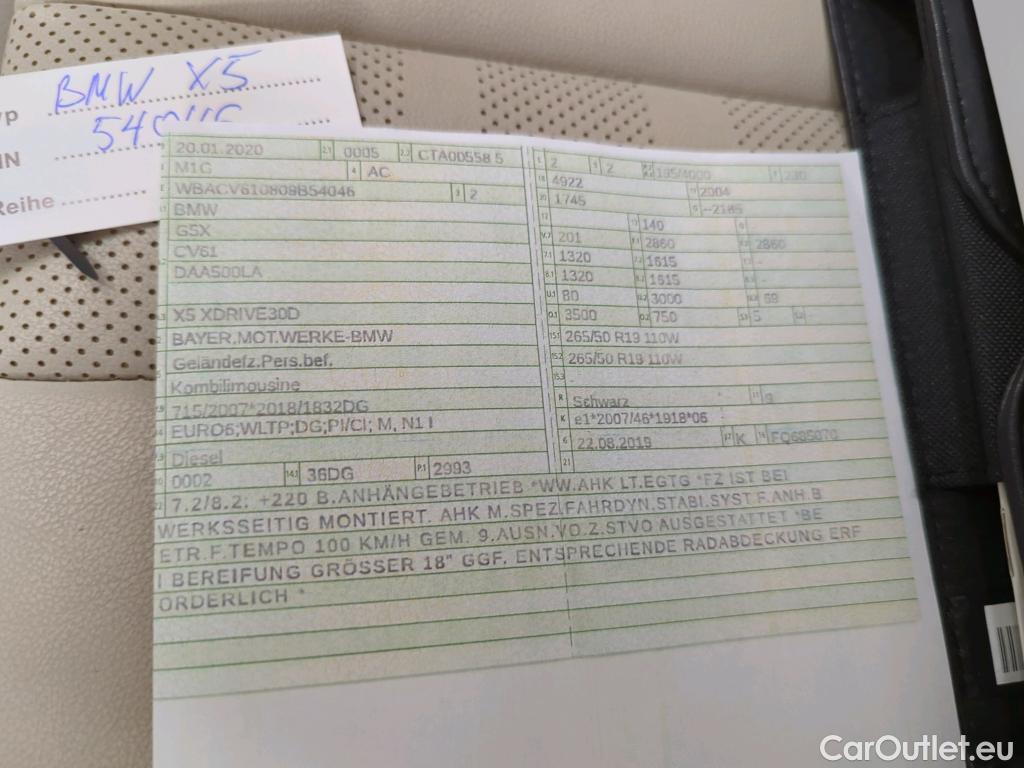 BMW X5
Reihe
20.01.2020 2.1 0005 2.2 CTA00558 5
M1G 4 AC
WBACV610809B54046 3 2
BMW
G5X
CV61
DAA500LA
X5 XDRIVE30D
BAYER.MOT.WERKE-BMW
Geländefz.Pers.bef.
Kombilimousine
715/2007*2018/1832DG
EURO6;WLTP;DG;PI/CI; M, N1 I
Diesel
0002 14.1 36DG P.1 2993
2 2 195/4000 230
4922 2004
1745 --2185
140
201 2860 2860
1320 1615 -
1320 1615 -
80 3000 68
3500 750 5
265/50 R19 110W
265/50 R19 110W
-
Schwarz 9
e1*2007/46*1918*06
22.08.2019 K
21
7.2/8.2: +220 B.ANHÄNGEBETRIEB *WW.AHK LT.EGTG *FZ IST BEI
WERKSSEITIG MONTIERT. AHK M.SPEZ.FAHRDYN.STABI.SYST F.ANH.B
ETR.F.TEMPO 100 KM/H GEM. 9.AUSN.VO.Z.STVO AUSGESTATTET *BE
I BEREIFUNG GRÖSSER 18" GGF. ENTSPRECHENDE RADABDECKUNG ERF
ORDERLICH *
CarOutlet.eu